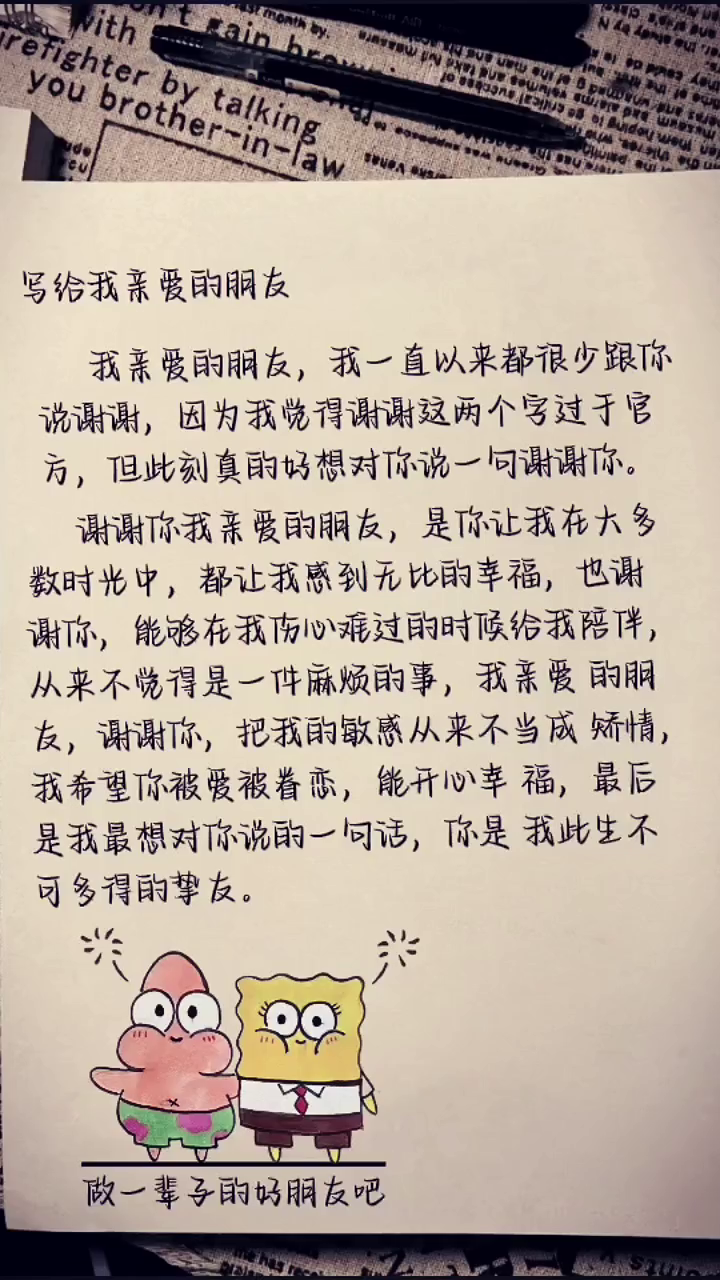 with
don't gain brow
month by.
firefighter by talking
you brother-in-law
写给我亲爱的朋友
我亲爱的朋友，我一直以来都很少跟你
说谢谢，因为我觉得谢谢这两个字过于官
方，但此刻真的好想对你说一句谢谢你。
谢谢你我亲爱的朋友，是你让我在大多
数时光中，都让我感到无比的幸福，也谢
谢你，能够在我伤心难过的时候给我陪伴，
从来不觉得是一件麻烦的事，我亲爱的朋
友，谢谢你，把我的敏感从来不当成矫情，
我希望你被爱被眷恋，能开心幸福，最后
是我最想对你说的一句话，你是我此生不
可多得的挚友。
做一辈子的好朋友吧